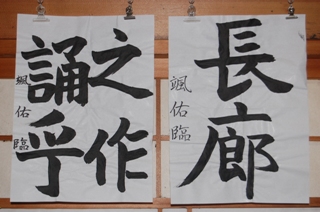 長廊
颯佑臨
之作
誦乎
颯佑臨